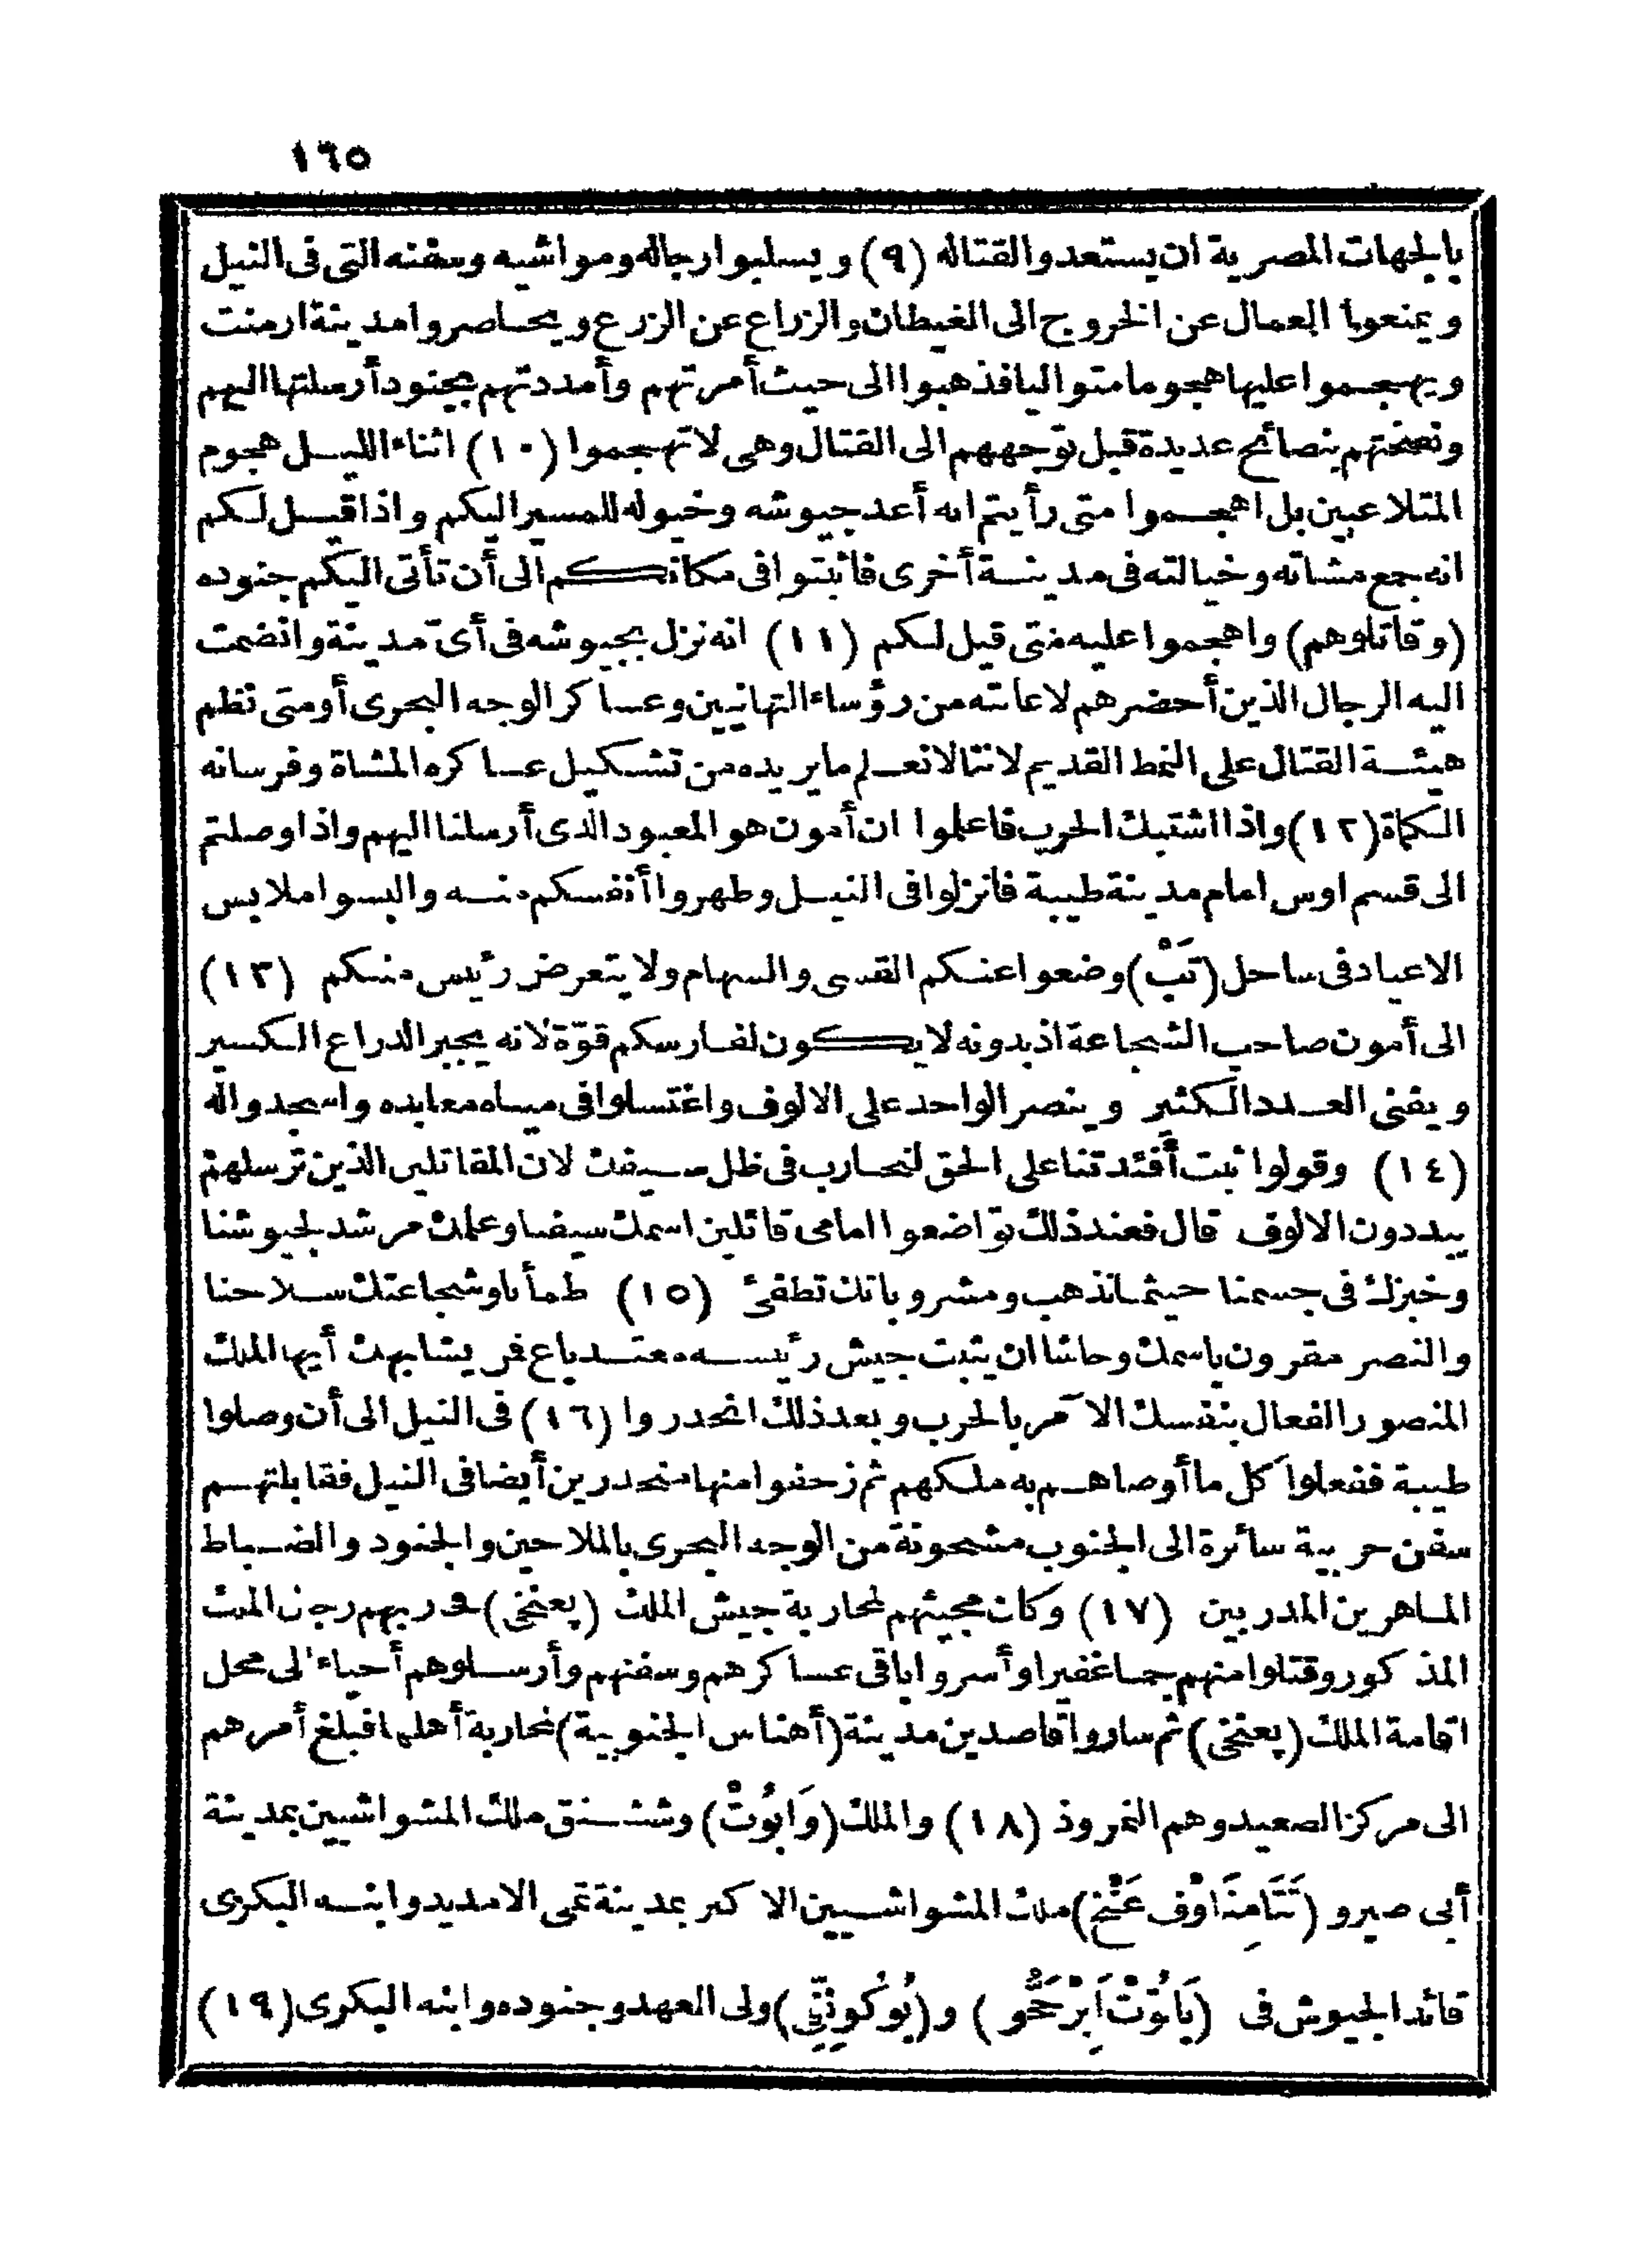 ١٦٥
بالجهات المصرية ان يستعدوا لقتاله (٩) ويسلبوا رجاله ومواشيه وسفنه التى فى النيل
ويمنعوا العمال عن الخروج الى الغيطان والزراع عن الزرع ويحاصروا مدينة ارمنت
ويهجموا عليها هجوما متواليا فذهبوا الى حيث أمرتهم وأمددتهم بجنود أرسلتها اليهم
ونصحتهم بنصائح عديدة قبل توجههم الى القتال وهى لا تهجموا (١٠) اثناء الليل هجوم
المتلاعبين بل اهجموا متى رأيتم انه أعد جيوشه وخيوله للمسير اليكم واذا قيل لكم
انه جمع مشاته وخيالته فى مدينة أخرى فاثبتوا فى مكانكم الى أن تأتى اليكم جنوده
(وقاتلوهم) واهجموا عليه متى قيل لكم (١١) انه نزل بجيوشه فى أى مدينة وانضمت
اليه الرجال الذين أحضرهم لاعانته من رؤساء التهانيين وعساكر الوجه البحرى أومتى نظم
هيئة القتال على النمط القديم لاننا لا نعلم ما يريده من تشكيل عساكره المشاة وفرسانه
الكماة (١٢) واذا اشتبك الحرب فاعلموا ان أمون هو المعبود الذى أرسلنا اليهم واذا وصلتم
الى قسم اوس امام مدينة طيبة فانزلوا فى النيل وطهروا أنفسكم منه والبسوا ملابس
الاعياد فى ساحل (تَبْ) وضعوا عنكم القسى والسهام ولا يتعرض رئيس منكم (١٣)
الى أمون صاحب الشجاعة اذ بدونه لا يكون لفارسكم قوّة لانه يجبر الذراع الكسير
ويفنى العدد الكثير وينصر الواحد على الالوف واغتسلوا فى مياه معابده واسجدوا له
(١٤) وقولوا ثبت أفئدتنا على الحق لنحارب فى ظل سيفك لان المقاتلين الذين ترسلهم
يبددون الالوف قال فعند ذلك تواضعوا امامى قائلين اسمك سيفنا وعلمك مرشد لجيوشنا
وخبزك فى جسمنا حيثما نذهب ومشروباتك تطفئ (١٥) ظمأنا وشجاعتك سلاحنا
والنصر مقرون باسمك وحاشا ان يثبت جيش رئيسه معتد باغ فمن يشابهك أيها الملك
المنصور الفعال بنفسك الآمر بالحرب وبعد ذلك انحدروا (١٦) فى النيل الى أن وصلوا
طيبة ففعلوا كل ما أوصاهم به ملكهم ثم زحفوا منها منحدرين أيضا فى النيل فقابلتهم
سفن حربية سائرة الى الجنوب مشحونة من الوجه البحرى بالملاحين والجنود والضباط
الماهرين المدربين (١٧) وكان مجيئهم لمحاربة جيش الملك (پعنخى) فحاربهم رجال الملك
المذكور وقتلوا منهم جما غفيرا وأسروا باقى عساكرهم وسفنهم وأرسلوهم أحياء الى محل
اقامة الملك (پعنخى) ثم ساروا قاصدين مدينة (أهناس الجنوبية) لمحاربة أهلها فبلغ أمرهم
الى مركز الصعيد وهم النمروذ (١٨) والملك (وَابُوتْ) وششنق ملك المشواشيين بمدينة
أبى صير و (تَتَامِنَاوْف عَنْخ) ملك المشواشيين الاكبر بمدينة تمى الامديد وابنه البكرى
قائد الجيوش فى ( ) و( ) ولى العهد وجنوده وابنه البكرى (١٩)